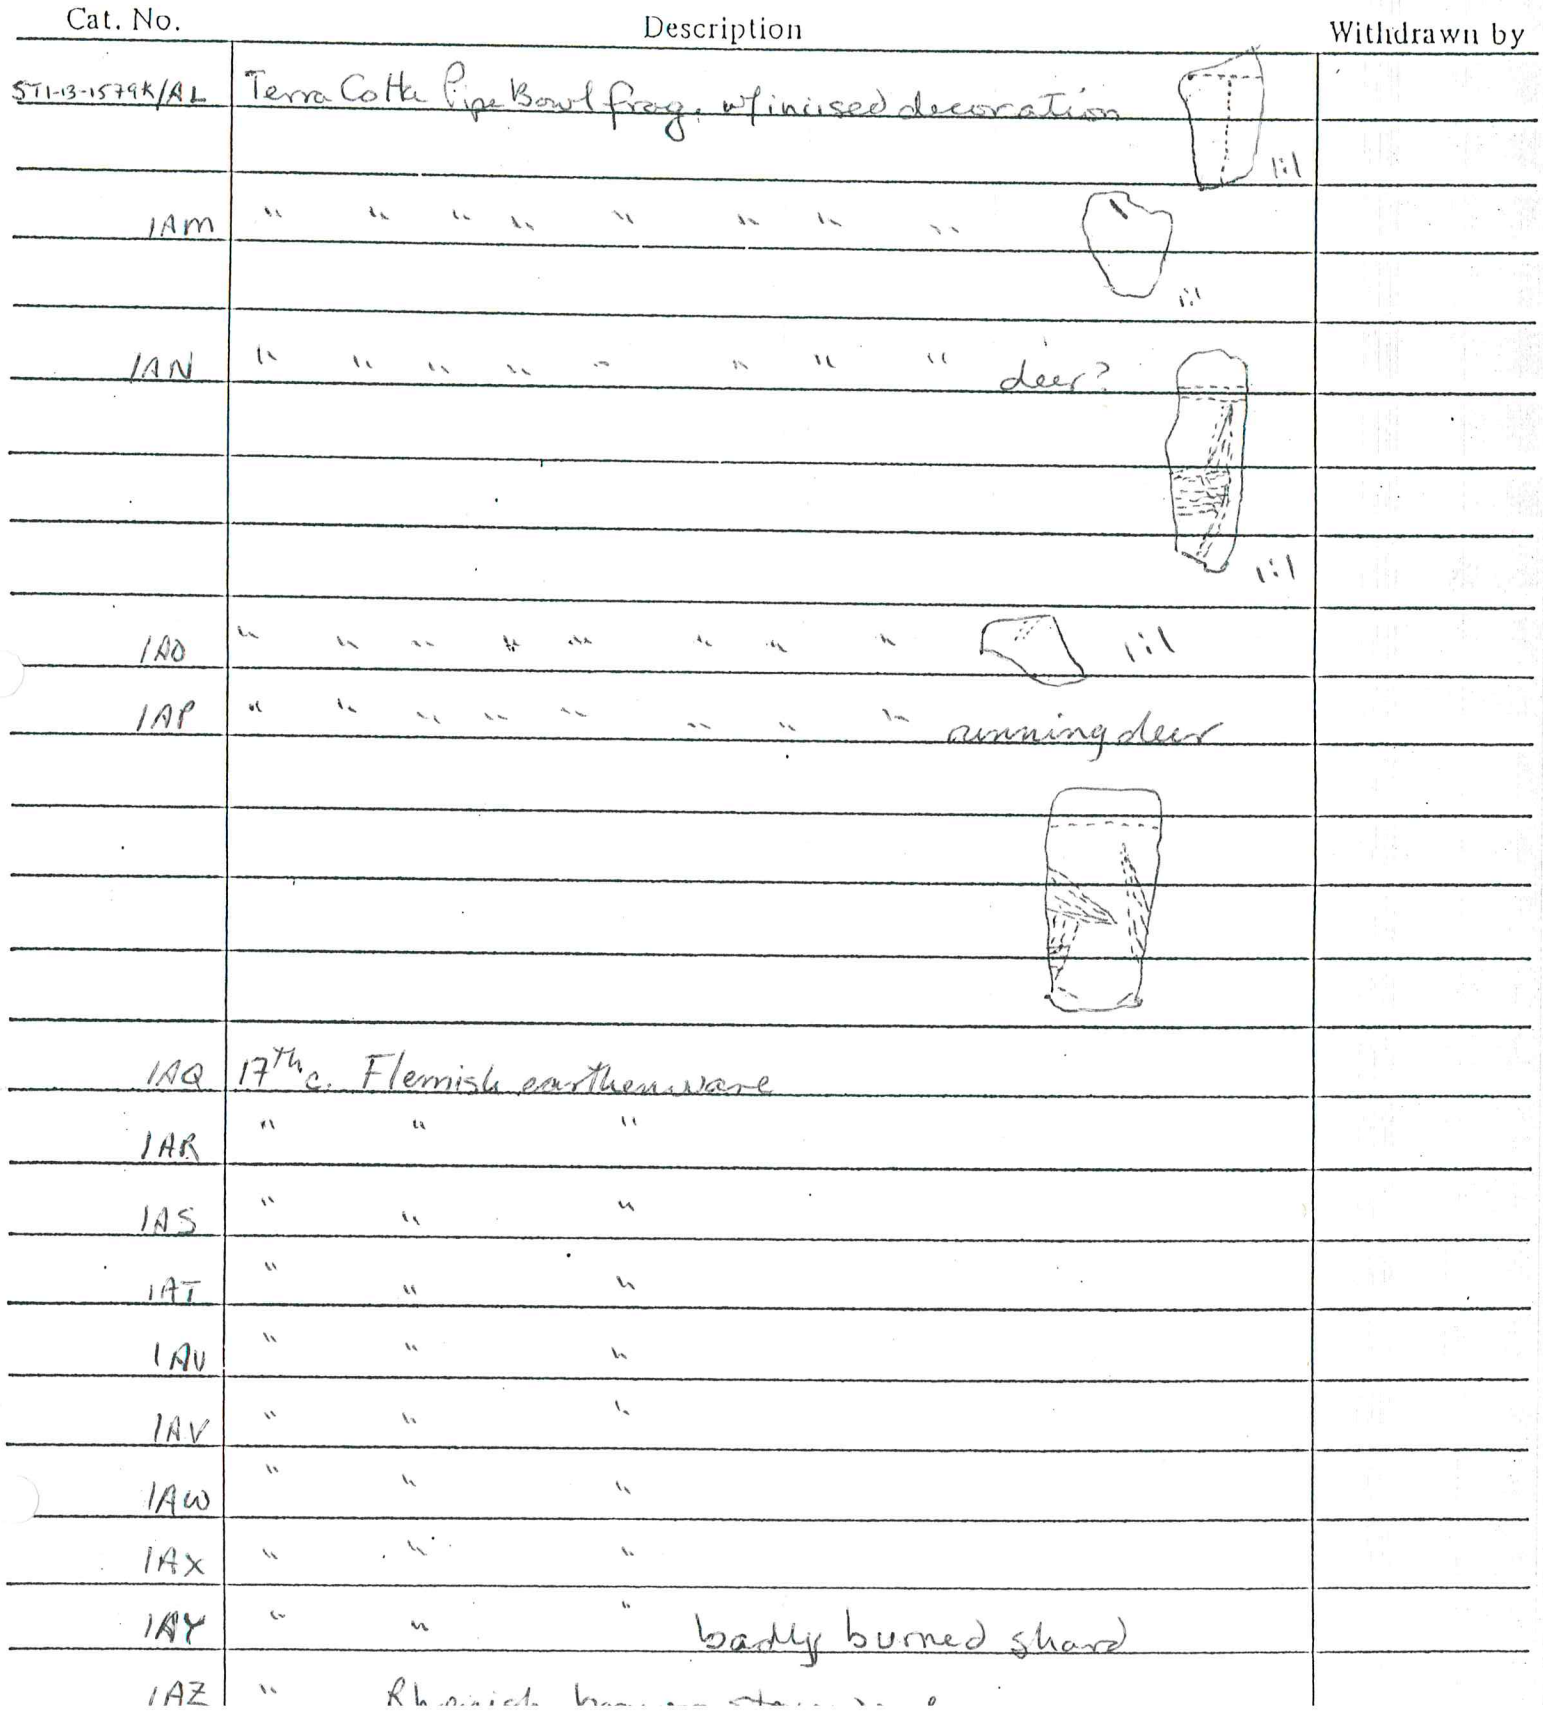 Cat. No. Description Withdrawn by
ST1-13-1579K/AL Terra Cotta Pipe Bowl frag. w/incised decoration
1:1
/AM " " " " " " " "
1:1
/AN " " " " " " " " deer?
1:1
/AO " " " " " " " " 1:1
/AP " " " " " " " " running deer
/AQ 17th c. Flemish earthenware
/AR " " "
/AS " " "
/AT " " "
/AU " " "
/AV " " "
/AW " " "
/AX " " "
/AY " " " badly burned shard
/AZ " Rhenish